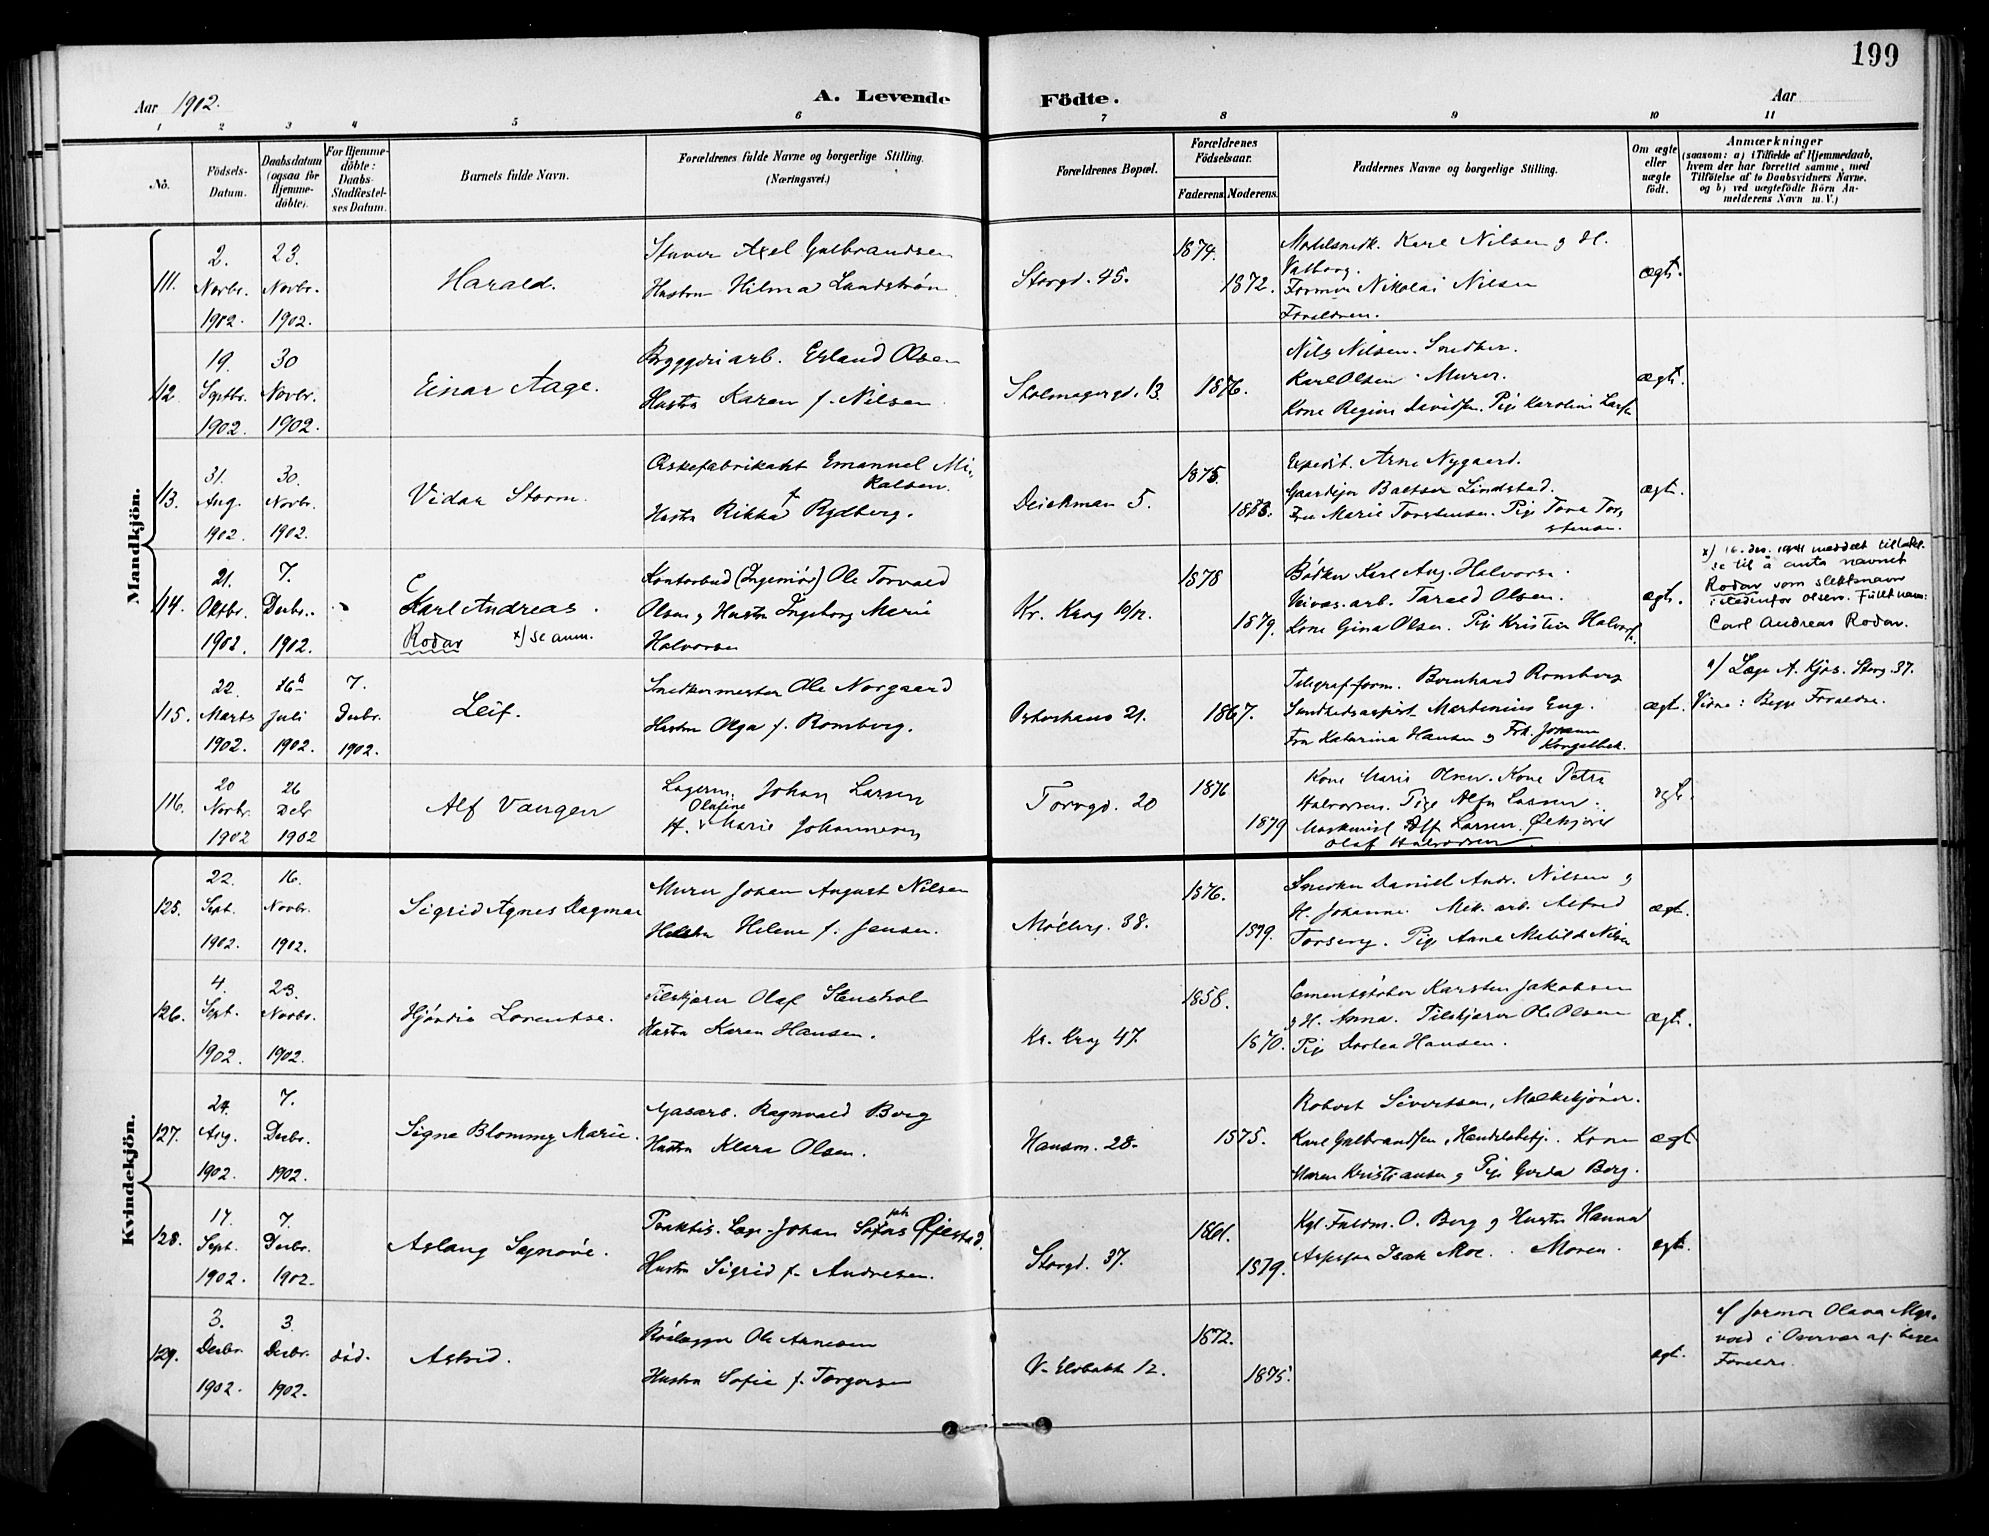 199
Aar 1902.
A. Levende Födte.
Aar
1 2 3 4 5 6 7 8 9 10 11
No.
Födsels-Datum.
Daabsdatum (ogsaa for Hjemme-döbte).
For Hjemme-döbte: Daabs-Stadfæstel-ses Datum.
Barnets fulde Navn.
Forældrenes fulde Navne og borgerlige Stilling. (Næringsvei.)
Forældrenes Bopæl.
Forældrenes Födselsaar.
Faderens. Moderens.
Faddernes Navne og borgerlige Stilling.
Om ægte eller uægte födt.
Anmærkninger
(saasom: a) i Tilfælde af Hjemmedaab, hvem der har forrettet samme, med Tilföielse af to Daabsvidners Navne, og b) ved uægtefödte Börn An-melderens Navn m. V.)
Mandkjön.
111.
2. Novbr. 1902
23. Novbr. 1902.
Harald.
Stuver Axel Gulbrandsen
Hustru Hilma Lundström
Storgd. 45.
1874.
1872.
Modelsnedk. Karl Nilsen g H.
Valborg.
Former Nikolai Nilsen
Forældren.
ægt.
112.
19. Septbr. 1902.
30 Novbr. 1902.
Einar Aage.
Byggeriarb. Erland Olsen
Hustru Karen f. Nilsen
Stolmagergd. 13.
1876.
Nils Nilsen. Snedker.
Karl Olsen. Murer.
Kone Regine Davidsen. Pige Karoline Larsen
ægt.
113.
31. Aug. 1902.
30. Novbr. 1902.
Vidar Storm.
Æskefabrikant Emanuel Mi-
kalsen.
Hustru Rikka Rydberg.
Deichman 5.
1875.
1878.
Expedit. Arne Nygaard.
Gaardejer Baltser Lindstad.
Fru Marie Torstensen. Pige Tora Tor-
stensen.
ægt.
114.
21. Oktbr. 1902.
7. Decbr. 1902.
C
Karl Andreas.
Rodar x) se anm.
Kontorbud (Ingeniør) Ole Torvald
Olsen g Hustru Ingeborg Marie
Halvorsen
Kr. Krog 10/12.
1878
1879.
Bødker Karl Aug. Halvorsen.
Veivæs.arb. Tarald Olsen.
Kone Gina Olsen. Pige Kristin Halvors.
ægt.
x) 16. des. 1941 meddelt tillatel-
se til å anta navnet
Rodar som slektsnavn
istedenfor Olsen. Fullt navn:
Carl Andreas Rodar.
115.
22. Marts 1902.
26 a) Juli 1902.
7. Decbr. 1902.
Leif.
Snedkermester Ole Norgaard
Hustru Olga f. Romberg.
Osterhaus 21.
1867.
Telegrafform. Bernhard Romberg
Sundhedsassist Martinius Eng.
Fru Katarina Hansen g Frk.
ægt.
a) Læge A. Kjøs. Storg. 37.
Vidne: Begge Forældre.
116.
20 Novbr. 1902
26 Dcbr 1902
Alf Vangen
Lagerm. Johan Larsen
Olafine
H. v Marie Johannesen
Torvgd. 20
1876
1879
Kone Marie Olsen. Kone Petra
Halvorsen. Pige Alfa Larsen.
Maskinist Alf Larsen. Ølkjører
Olaf Halvorsen.
ægt.
Kvindekjön.
125.
22. Sept. 1902.
16. Novbr. 1902.
Sigrid Agnes Dagmar
Murer Johan August Nilsen
Hustru Helene f. Jensen.
Møllerg. 38.
1876.
1879.
Snedker Daniel Andr. Nilsen g
H. Johanne. Mek. arb. Alfred
Torseng. Pige Anna Matilde Nilsen
ægt.
126.
4. Sept. 1902.
23. Novbr. 1902.
Hjördis Lorentse.
Tilskjærer Olaf Stenshol
Hustru Karen Hansen.
Kr. Krog 47.
1858.
1870.
Cementstøber Karsten Jakobsen
g H. Anna. Tilskjærer Ole Olsen
Pige Dortea Hansen.
ægt.
127.
24. Aug. 1902.
7. Decbr. 1902.
Signe Blommy Marie.
Gasarb. Ragnvald Berg
Hustru Klara Olsen.
Hausm. 28.
1875.
Robert Sivertsen, Melkekjører.
Karl Gulbrandsen, Handelsbetj. Kone
Maren Kristiansen g Pige Gerda Berg.
ægt
128.
17. Sept. 1902.
7. Decbr. 1902.
Aslaug Synøve.
Praktis. Læge Johan Sofus Øjestad.
Hustru Sigrid f. Andresen.
Storgd. 37.
1861.
1879.
Kgl. Fuldm. O. Berg g Hustru Hanna
Isak Moe. Moren.
ægt.
129.
3. Decbr. 1902.
3. Decbr. 1902.
död.
Astrid.
Rörlægger Ole Arnesen
Hustru Sofie f. Torgersen
V. Elvebakk 12.
1872.
1875.
ægt.
a) Jormor Olava Myr-
vold i Overvær af begge
Forældre.